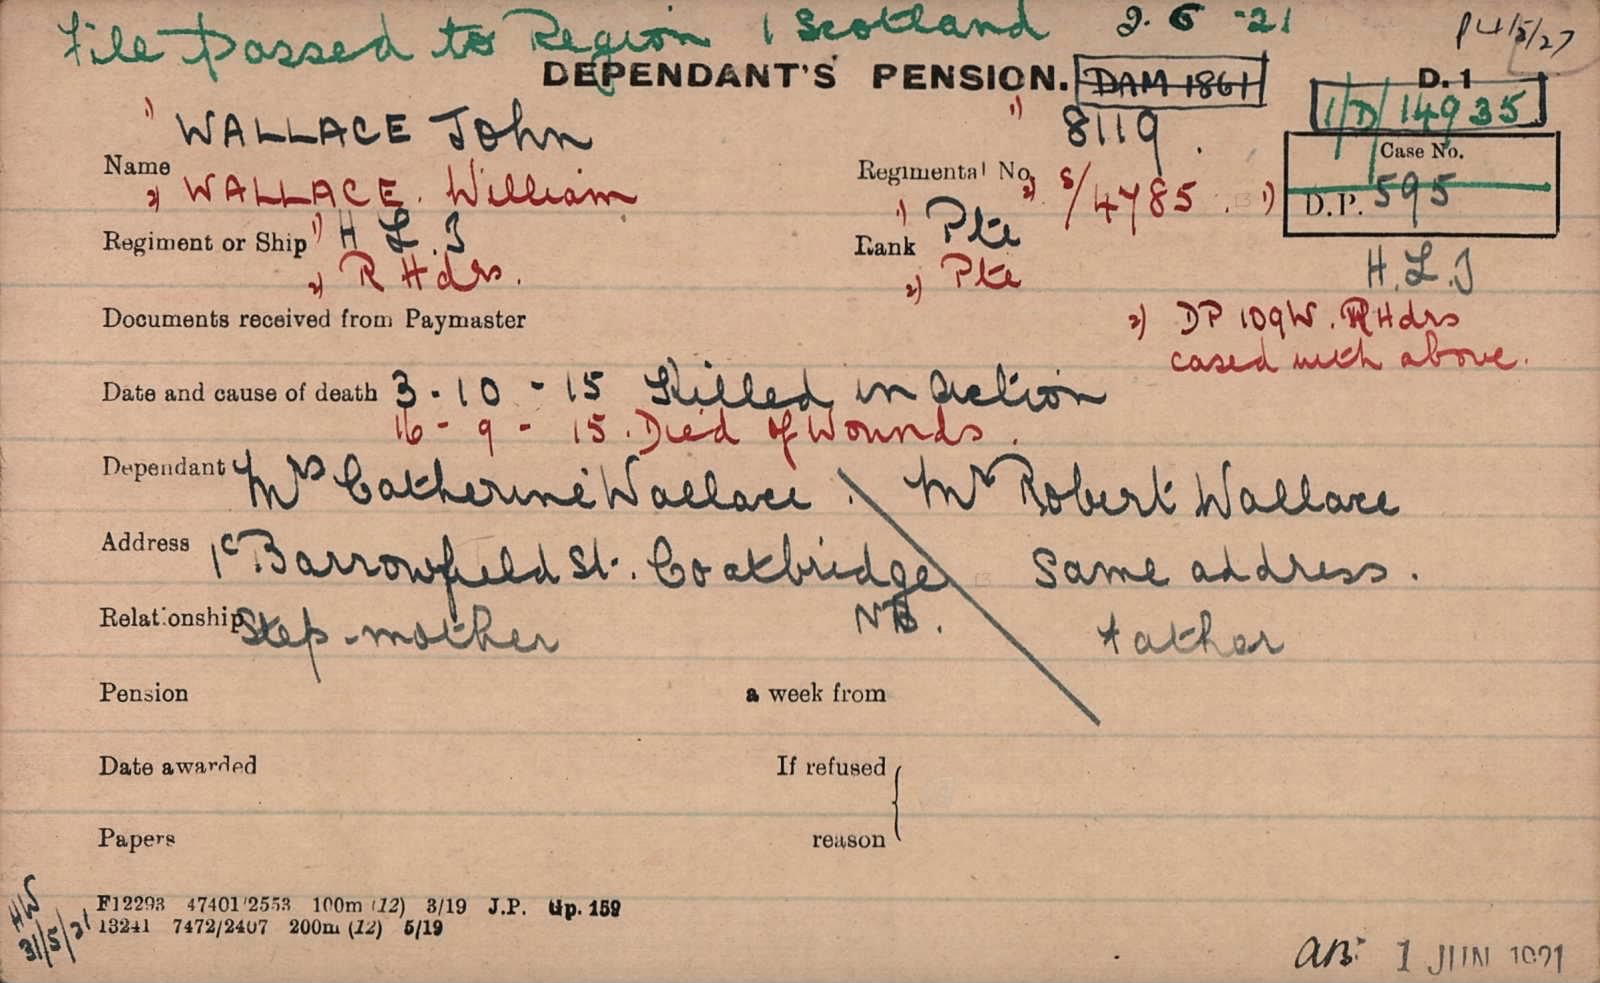 File Passed to Region 1 Scotland 2.6-21
P 4/5/27
DEPENDANT'S PENSION. DAM 1861 D. 1
1/D/14935
1) WALLACE John 1) 8119.
Name Regimental No. Case No.
2) WALLACE. William 2) S/4785. 1) D.P. 595
Regiment or Ship 1) H.L.I Rank 1) Pte H.L.I
2) R Hdrs. 2) Pte
Documents received from Paymaster 2) DP 109W. R Hdrs
cased with above.
Date and cause of death 3-10-15 Killed in Action
16-9-15. Died of Wounds.
Dependant Mrs Catherine Wallace. Mr Robert Wallace
Address 1c Barrowfield St. Coatbridge Same address.
Relationship Step-mother NB. Father
Pension a week from
Date awarded If refused
Papers reason
F12293 47401/2553 100m (12) 3/19 J.P. Gp. 159
13241 7472/2407 200m (12) 5/19
HW
31/5/21
1 JUN 1921